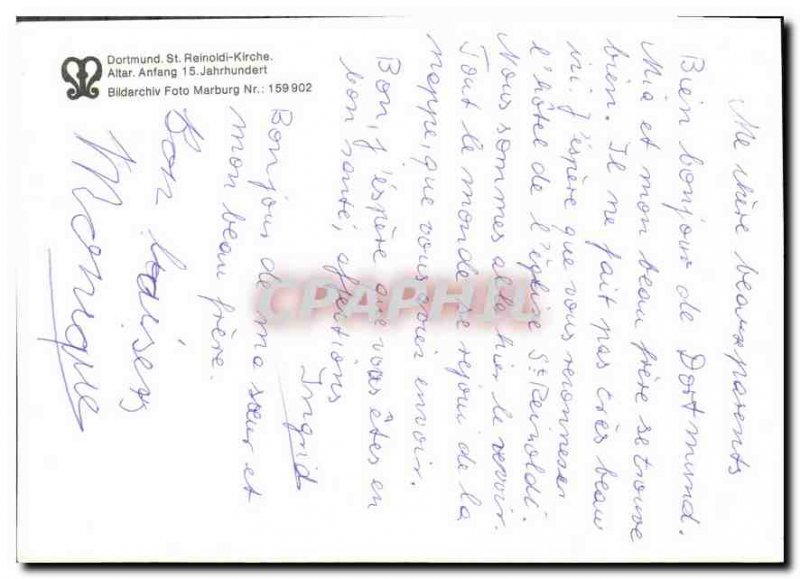 Dortmund. St. Reinoldi-Kirche.
Altar. Anfang 15. Jahrhundert
Bildarchiv Foto Marburg Nr.: 159 902
Me chère beaux parents
Bien bonjour de Dortmund.
Mia et mon beau frère se trouve
bien. Il ne fait pas très beau
ici. J'espère que vous reconnesser
l'hôtel de l'église St Reinoldi.
Nous sommes allé hier le revoir.
Tout le monde se rejoui de la
nappe, que vous avier envoir.
Bon, j'éspère que vous êtes en
bon santé, affections
Ingrid
Bonjour de ma sœur et
mon beau frère.
Bon baisers
Monique
CPAPHIL